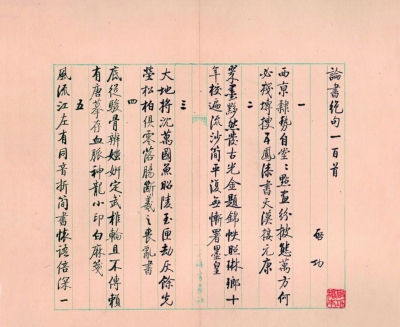 論書絕句一百首
啟功
一
西京隸勢自堂〻點畫紛披態萬方何
必殘磚搜五鳳漆書天漢接元康
二
翠墨黟然發古光金題錦帙照琳瑯十
年校遍流沙簡平復無慚署墨皇
三
大地將沉萬國魚昭陵玉匣劫灰餘先
塋松柏俱零落腸斷羲之喪亂書
四
底從駿骨辨媸妍定武椎輪且不傳賴
有唐摹存血脈神龍小印白麻箋
五
風流江左有同音折簡書懷語倍深一